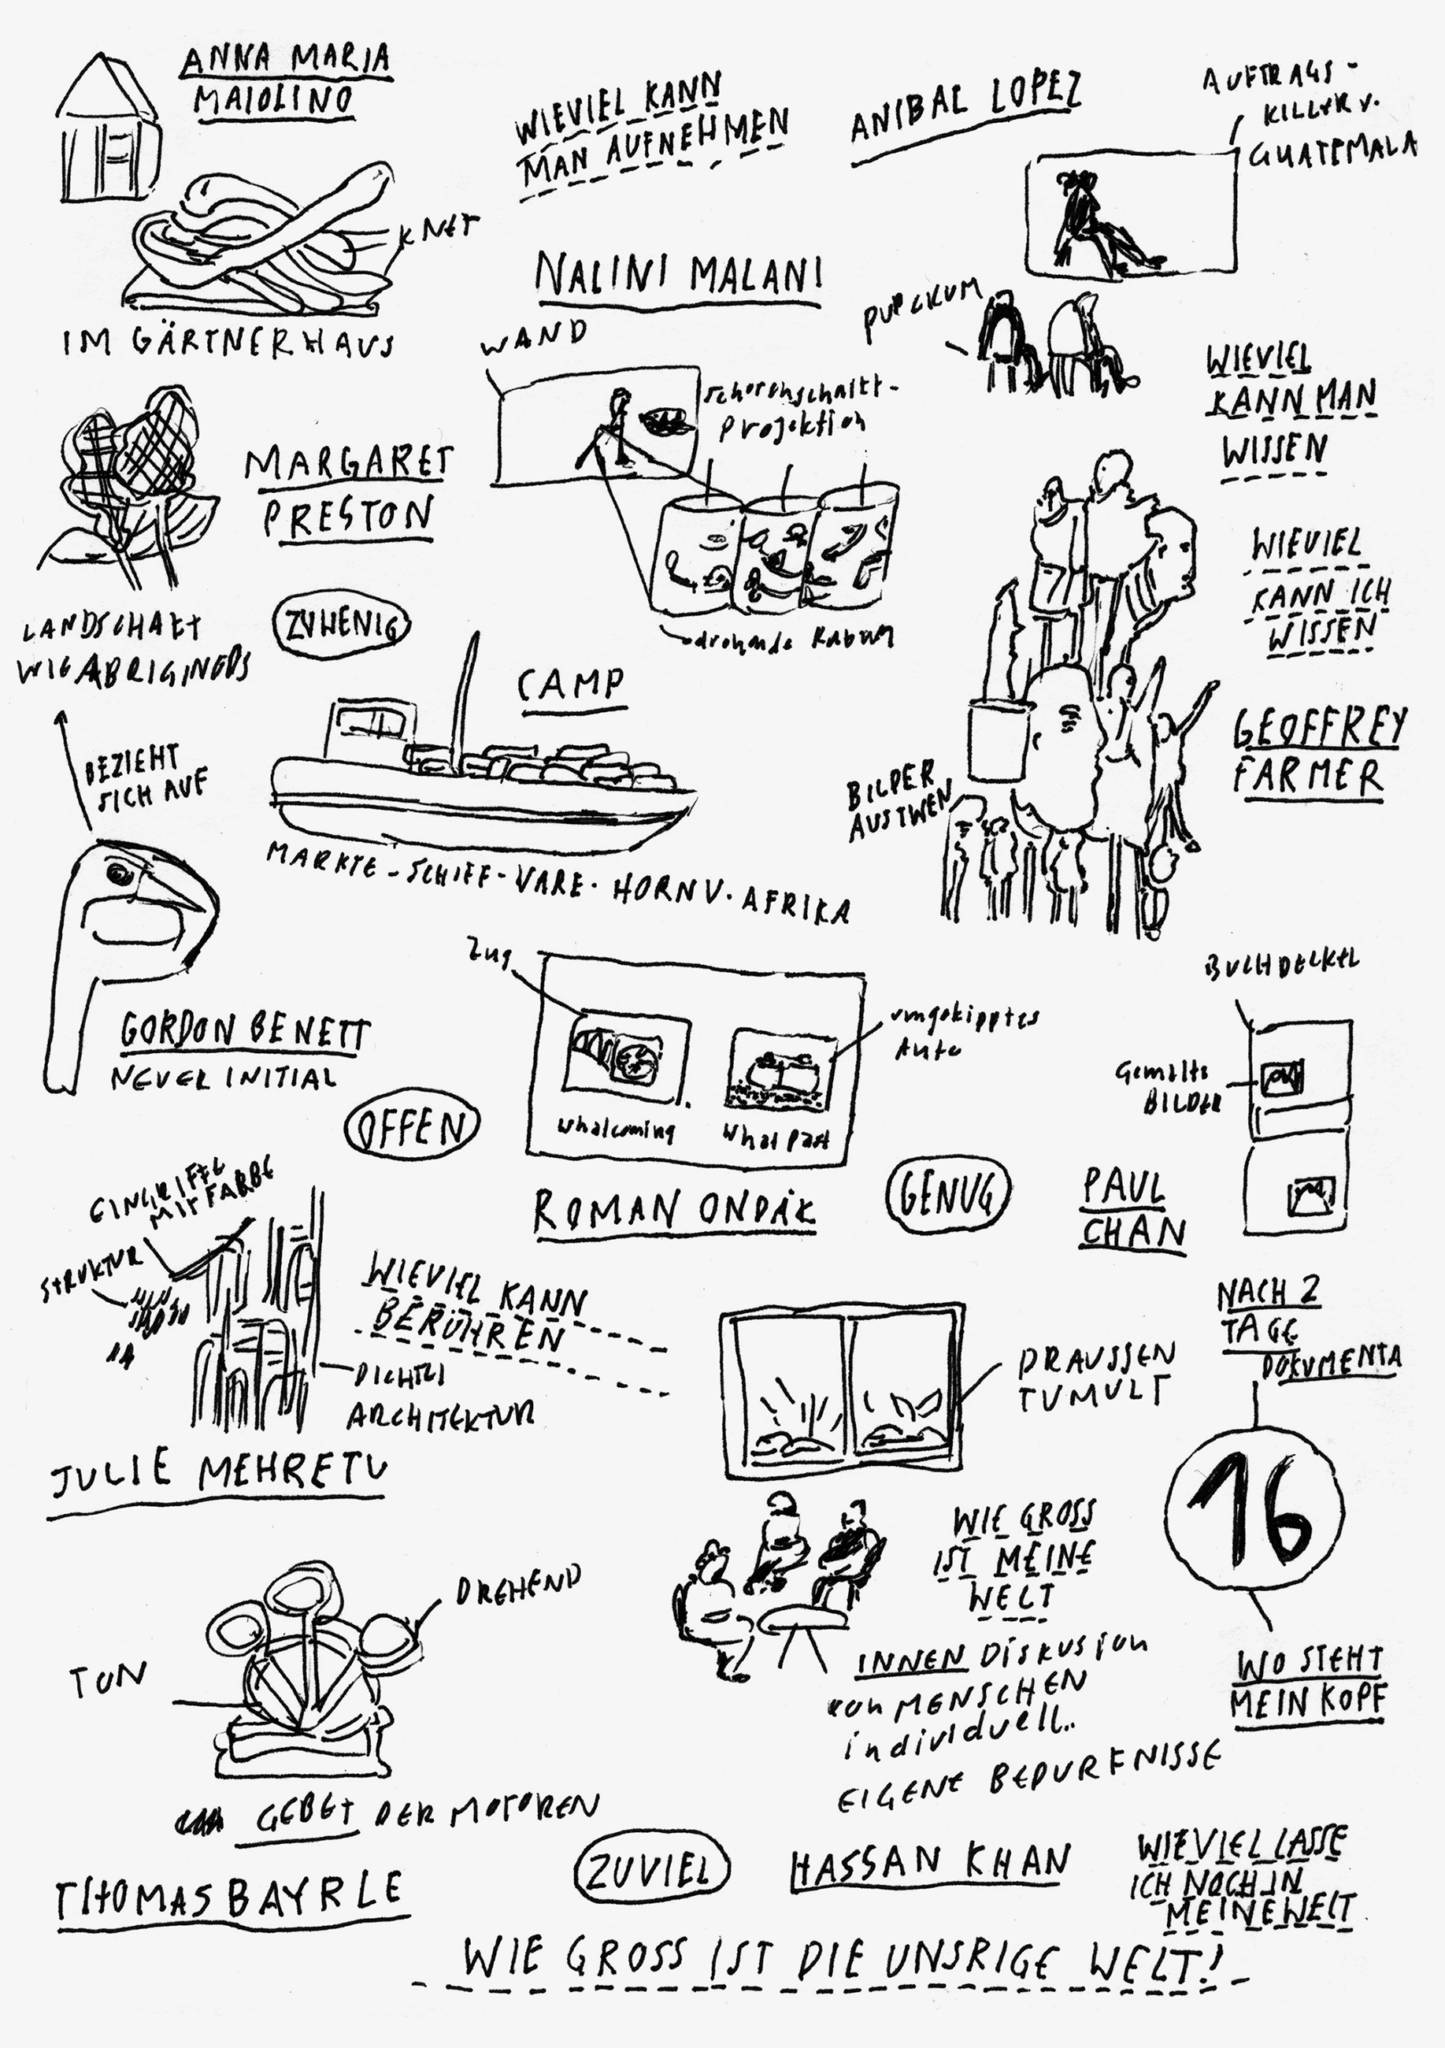 ANNA MARIA
MAIOLINO
KNET
IM GÄRTNERHAUS
WIEVIEL KANN
MAN AUFNEHMEN
ANIBAL LOPEZ
AUFTRAGS-
KILLER V.
GUATEMALA
NALINI MALANI
WAND
PUPLKUM
WIEVIEL
KANN MAN
WISSEN
MARGARET
PRESTON
LANDSCHAFT
WIE ABRIGINEDS
ZUWENIG
drehende
WIEVIEL
KANN ICH
WISSEN
CAMP
MARKTE-SCHIFF-VARE-HORN V. AFRIKA
GEOFFREY
FARMER
BILDER
AUS
BEZIEHT
SICH AUF
GORDON BENETT
NEVER INITIAL
Zug
umgekipptes
Auto
whalcoming
What past
ROMAN ONDÁK
BUCHDECKEL
Gemalte
BILDER
PAUL
CHAN
OFFEN
GENUG
EINGRIFFE
MIT FARBE
STRUKTUR
DICHTE
ARCHITEKTUR
JULIE MEHRETU
WIEVIEL KANN
BERÜHREN
DRAUSSEN
TUMULT
NACH 2
TAGE
DOKUMENTA
16
WO STEHT
MEIN KOPF
WIE GROSS
IST MEINE
WELT
INNEN DISKUSION
von MENSCHEN
individuell..
EIGENE BEDURFNISSE
DREHEND
TON
GEBET DER MOTOREN
THOMAS BAYRLE
ZUVIEL
HASSAN KHAN
WIEVIEL LASSE
ICH NOCH IN
MEINE WELT
WIE GROSS IST DIE UNSRIGE WELT!